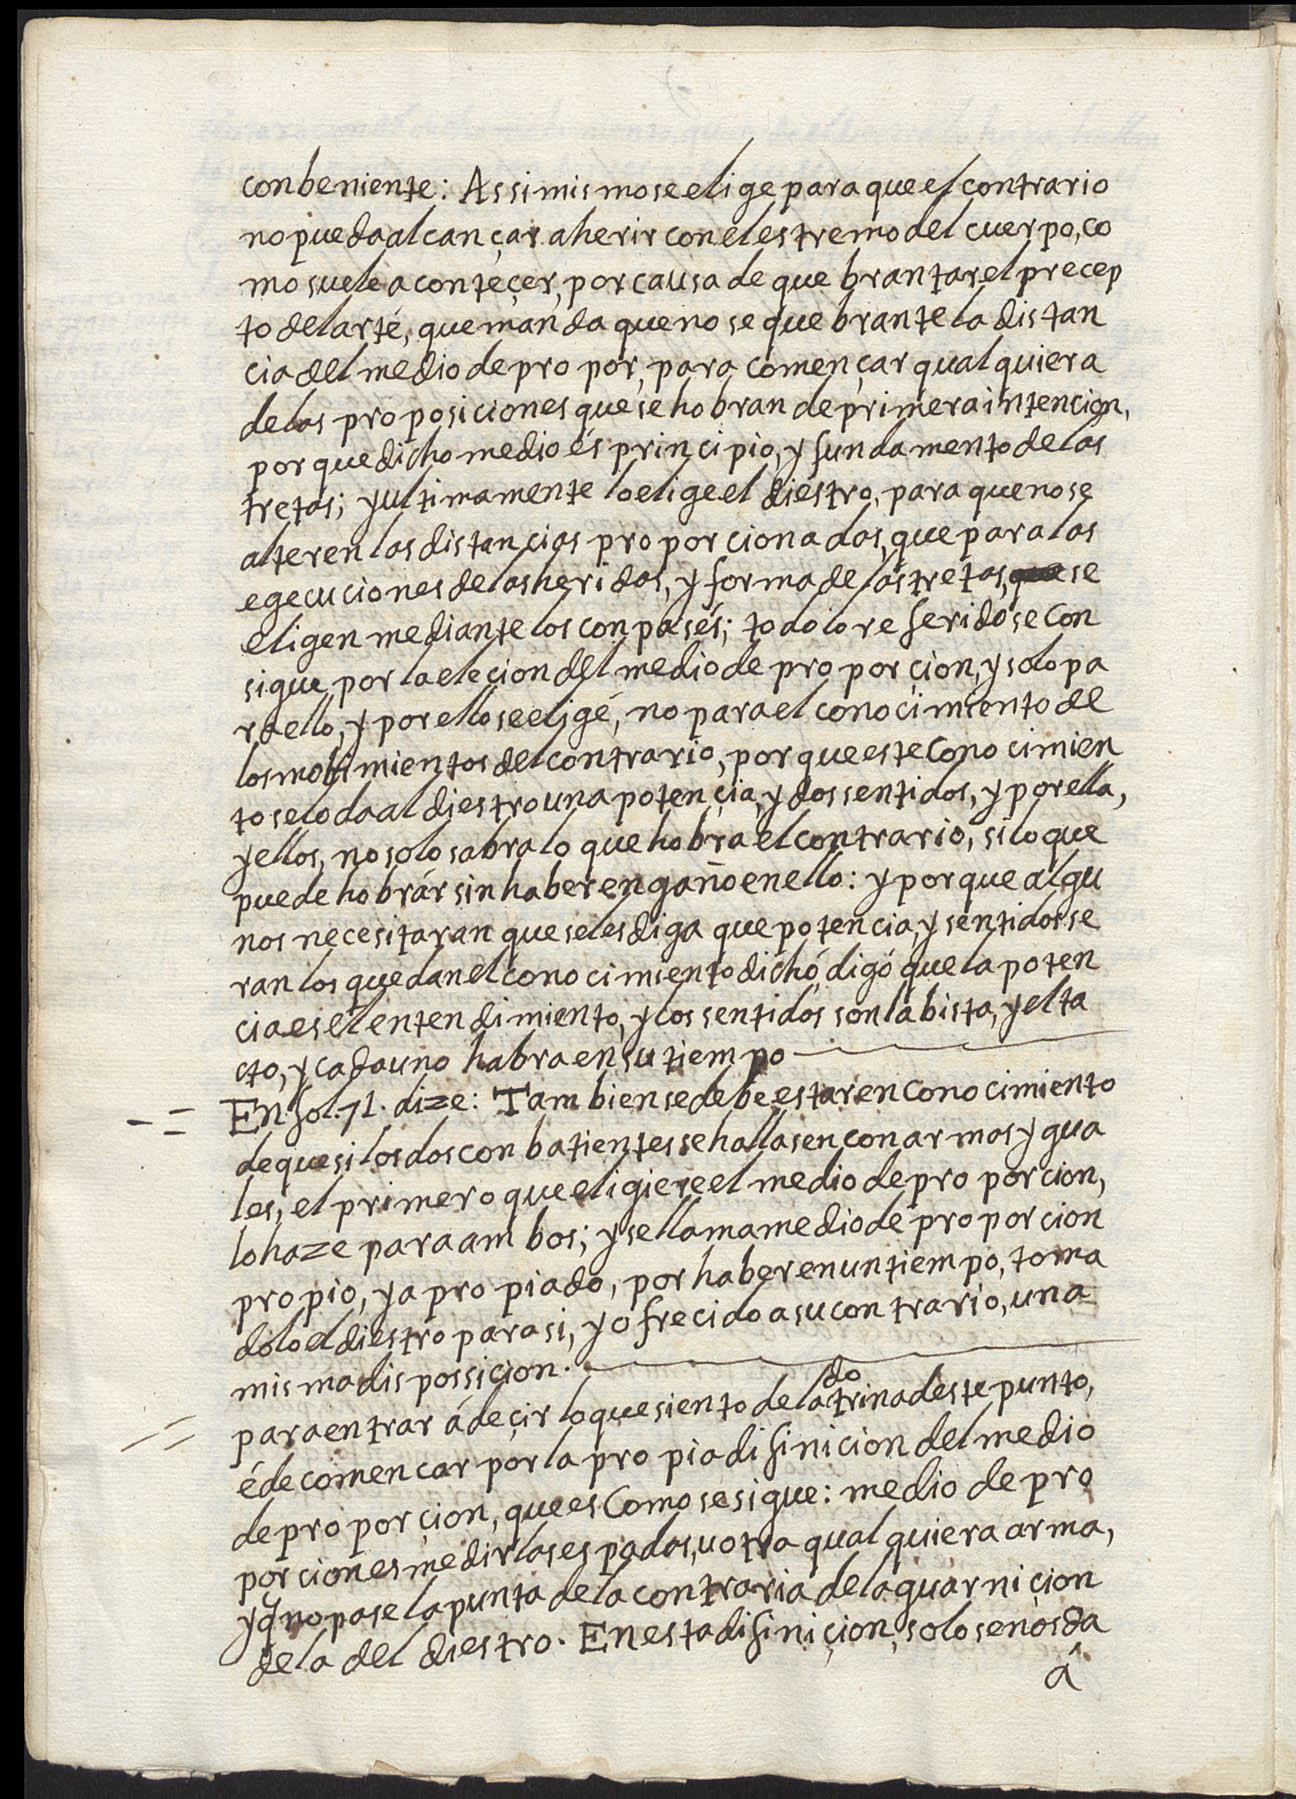 conbeniente: Assimismo se elige para que el contrario
no pueda alcançar a herir con el estremo del cuerpo, co
mo suele aconteçer, por causa de quebrantar el precep
to del arte, que manda que no se quebrante la distan
cia del medio de propor, para començar qualquiera
de las proposiciones que se hobran de primera intencion,
por que dicho medio es principio, y fundamento de las
tretas; y ultimamente lo elige el diestro, para que no se
alteren las distancias proporcionadas, que para las
egecuciones de las heridas, y forma de las tretas, se
eligen mediante los conpases; todo lo referido se con
sigue por la elecion del medio de proporçion, y solo pa
ra ello, y por ello se elige, no para el conocimiento de
los mobimientos del contrario, por que este conocimien
to se lo da al diestro una potençia, y dos sentidos, y por ella,
y ellos, no solo sabra lo que hobra el contrario, si lo que
puede hobrár sin haber engaño en ello: y porque algu
nos necesitaran que se les diga que potencia, y sentidos se
ran los que dan el conocimiento dichó, digó que la poten
cia es el entendimiento, y los sentidos son la bista, y el ta
cto, y cada uno habra en su tiempo
En fol. 71. dize: Tambien se debe estar en conocimiento
de que si los dos conbatientes se hallasen con armas ygua
les, el primero que eligiere el medio de proporcion,
lo haze para ambos; y se llama medio de proporcion
propio, y apropiado, por haber en un tiempo, toma
dolo el diestro para si, y ofrecido a su contrario, una
misma dispossicion.
para entrar á deçir lo que siento de la dotrina deste punto,
é de comencar por la propia difinicion del medio
de proporçion, que es como se sigue: medio de pro
porcion es medir las espadas, u otra qualquiera arma,
y q̄ no pase la punta de la contraria de la guarniçion
de la del diestro. En esta difiniçion, solo se nos da
á